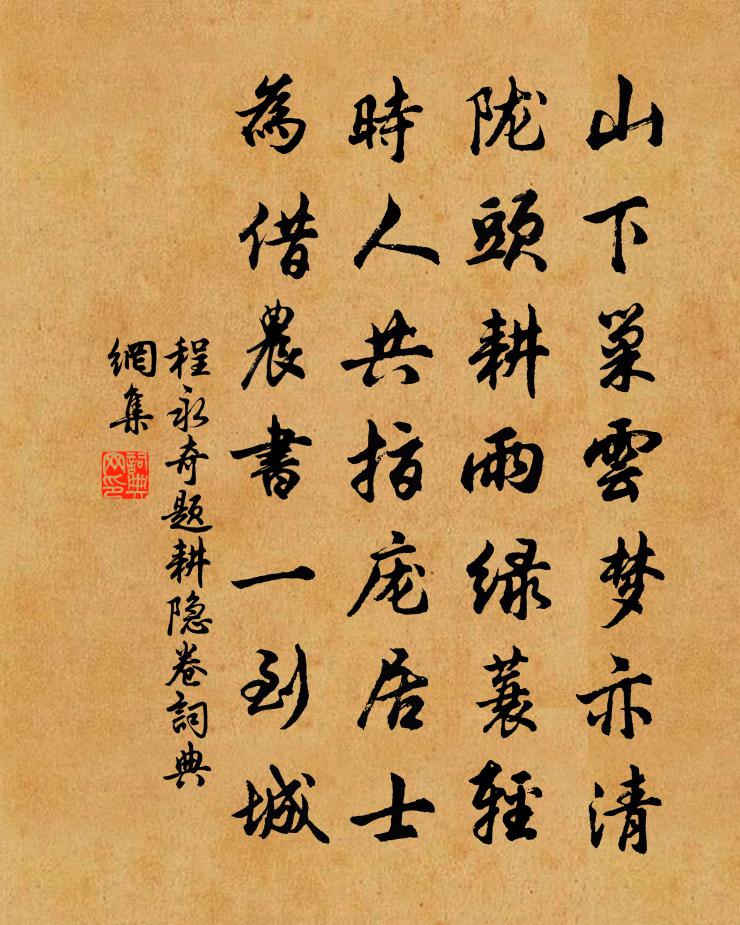 山下巢雲梦亦清
陇頭耕雨绿蓑輕
時人共指庞居士
為借農書一到城
程永奇题耕隐卷詞典
網集
詞典
网印